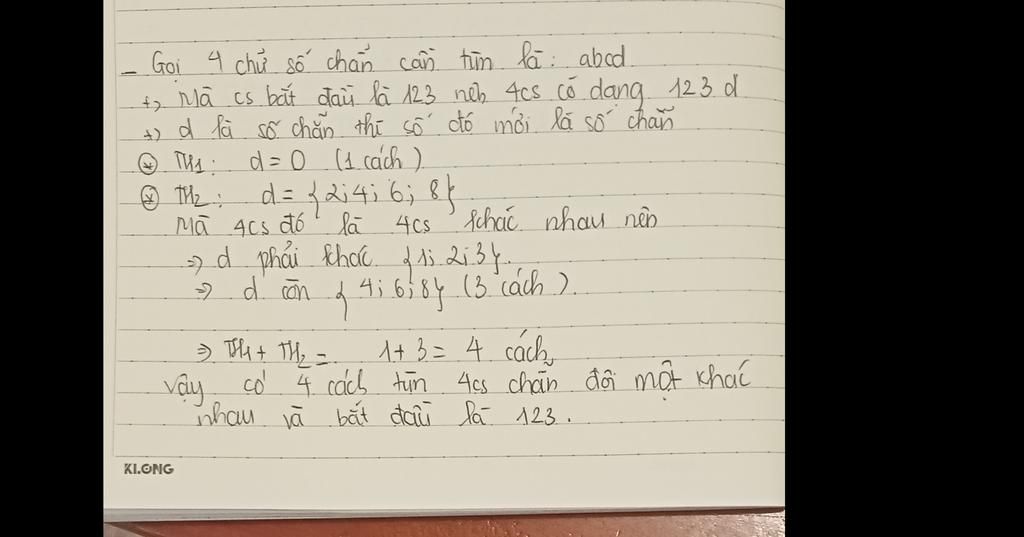 - Gọi 4 chữ số chẵn cần tìn là: abcd
+, Mà cs bắt đầu là 123 nên 4cs có dạng 123 d
+, d là số chẵn thì số đó mới là số chẵn
⊛ TH1: d = 0 (1 cách)
⊛ TH2: d = {2; 4; 6; 8}
Mà 4cs đó là 4cs khác nhau nên
⇒ d phải khác {1; 2; 3}.
⇒ d còn {4; 6; 8} (3 cách).
⇒ TH1 + TH2 = 1 + 3 = 4 cách
Vậy có 4 cách tìn 4cs chẵn đôi một khác
nhau và bắt đầu là 123.
KLONG